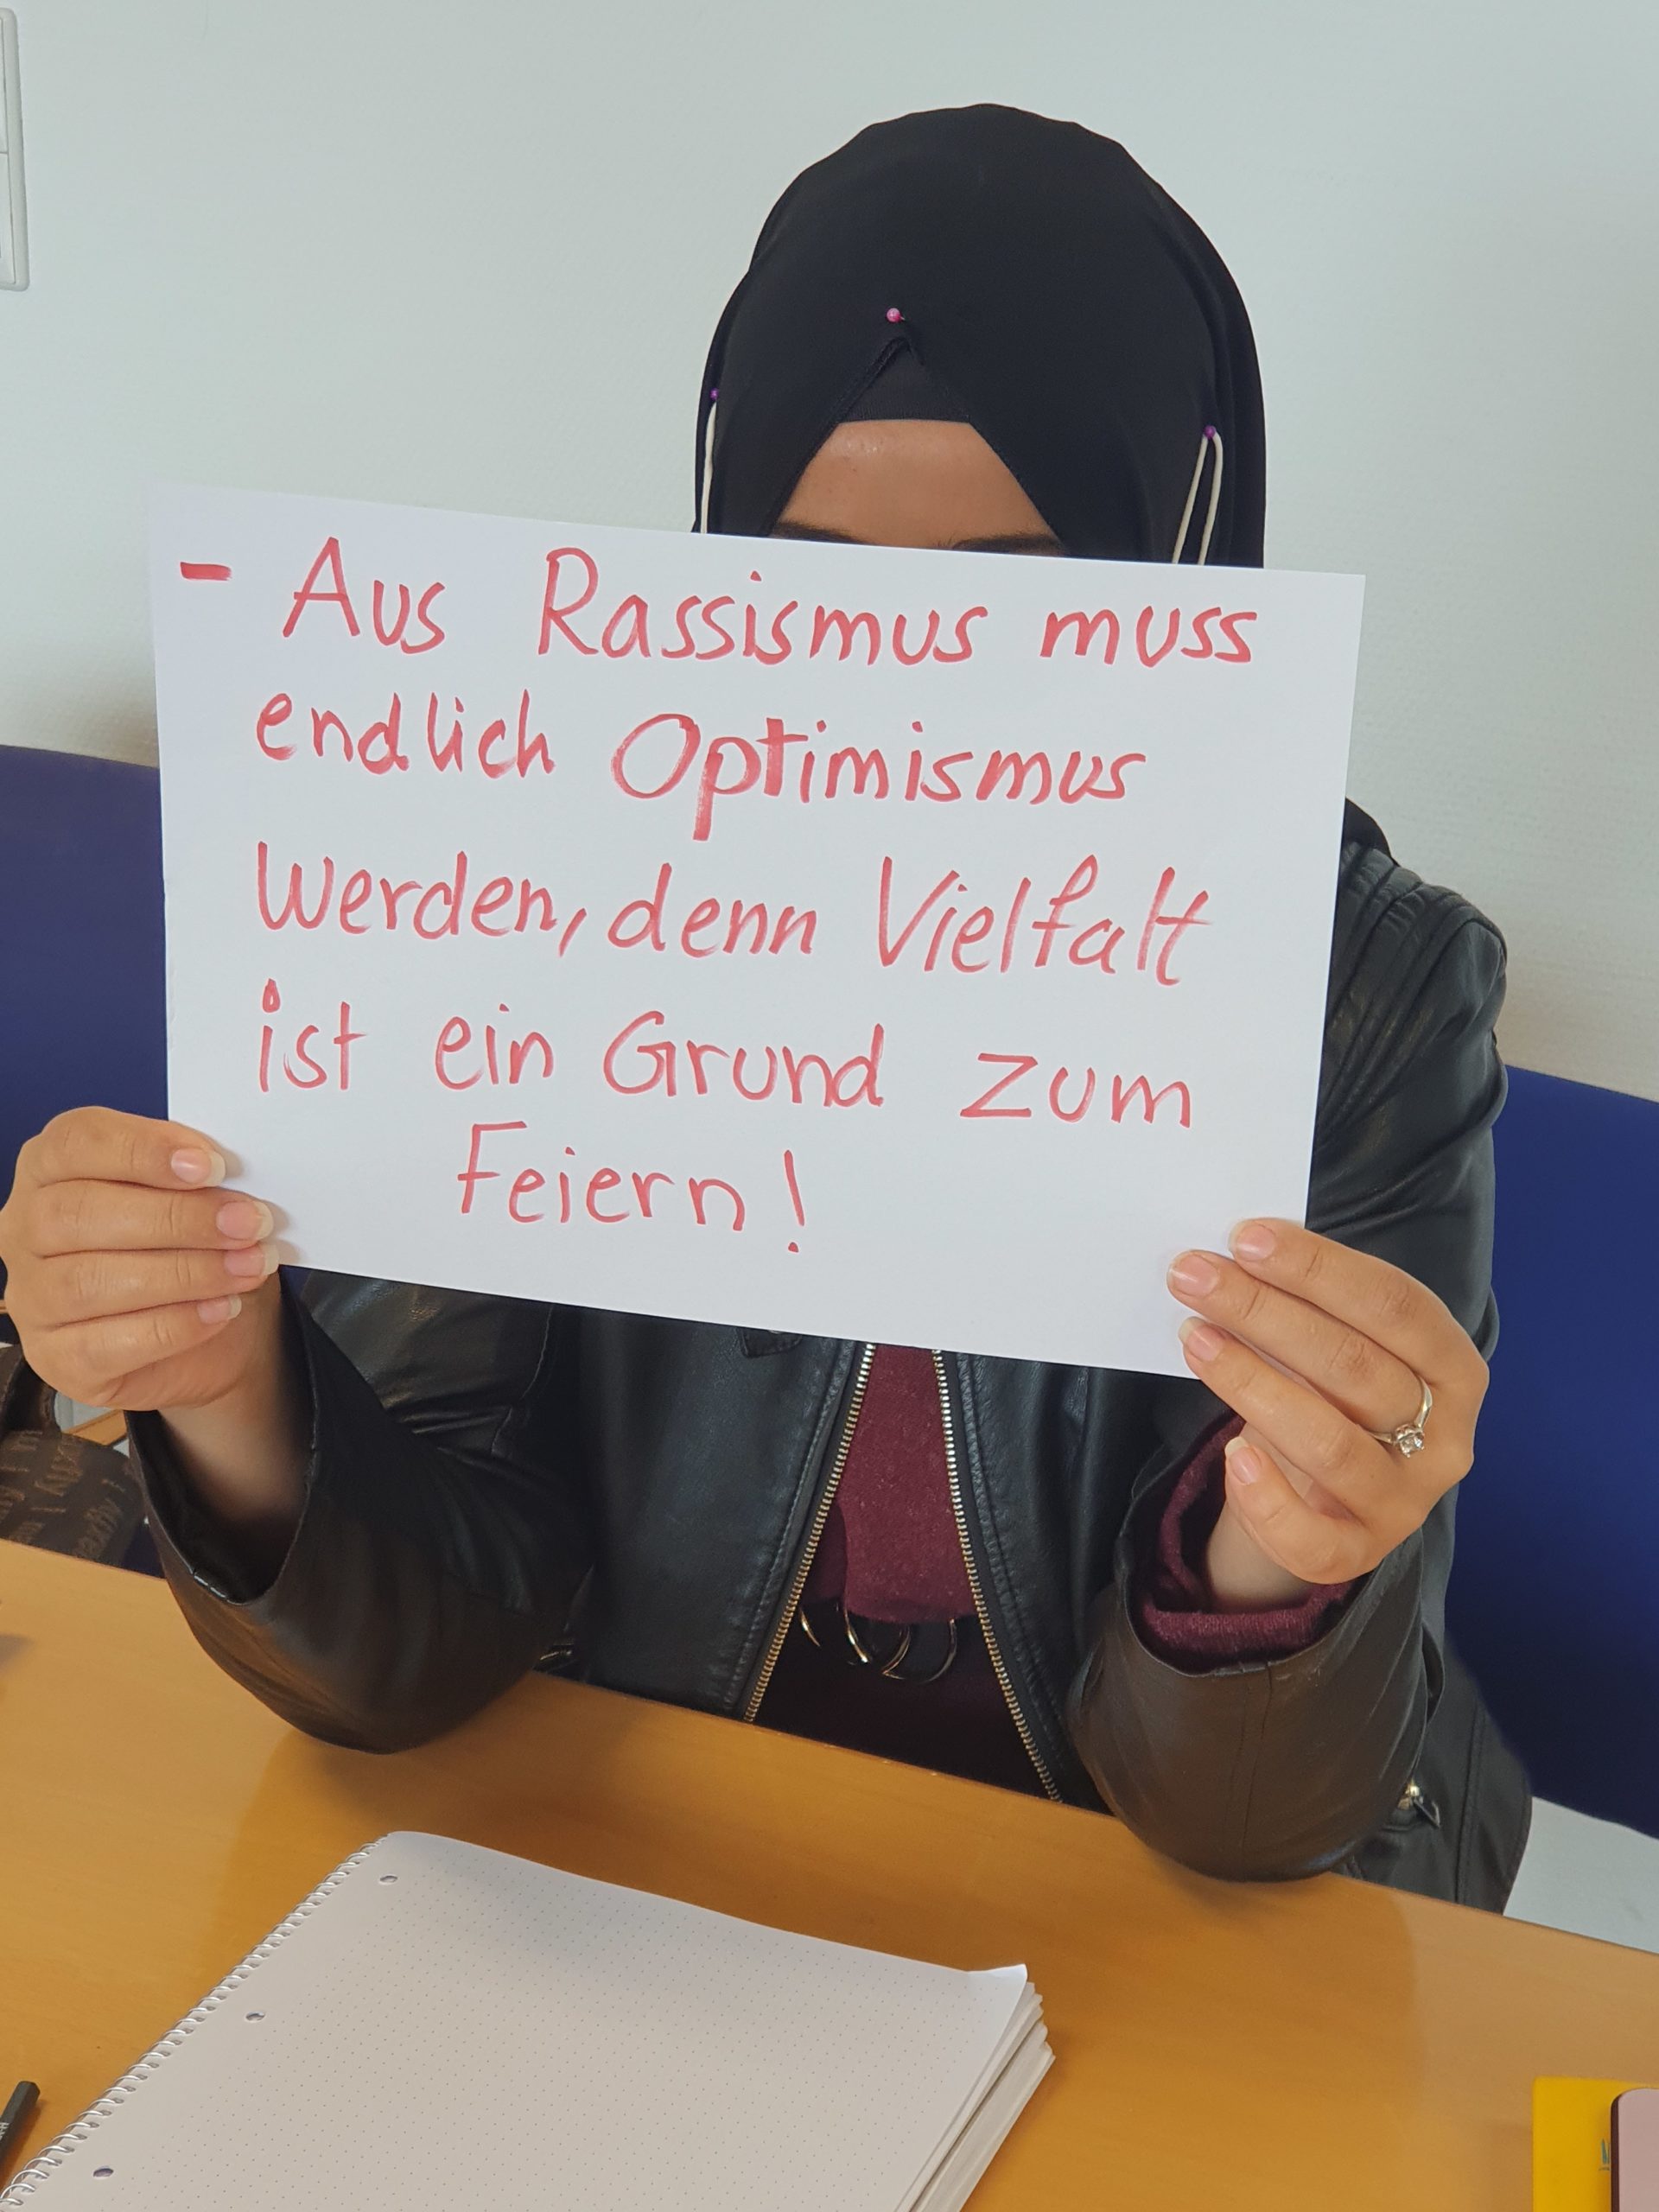 - Aus Rassismus muss
endlich Optimismus
werden, denn Vielfalt
ist ein Grund zum
Feiern!